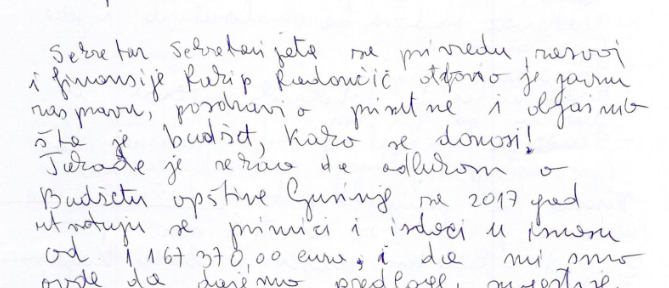 Sekretar Sekretarijata za privredu, razvoj
i finansije Račip Radončić otvorio je javnu
raspravu, pozdravio prisutne i objasnio
šta je budžet, kako se donosi!
Takođe je rekao da odlukom o
Budžetu opštine Gusinje za 2017 god
utvrđuju se primici i izdaci u iznosu
od 1 167 370,00 eura, i da mi smo
ovde da dajemo predloge, sugestije.